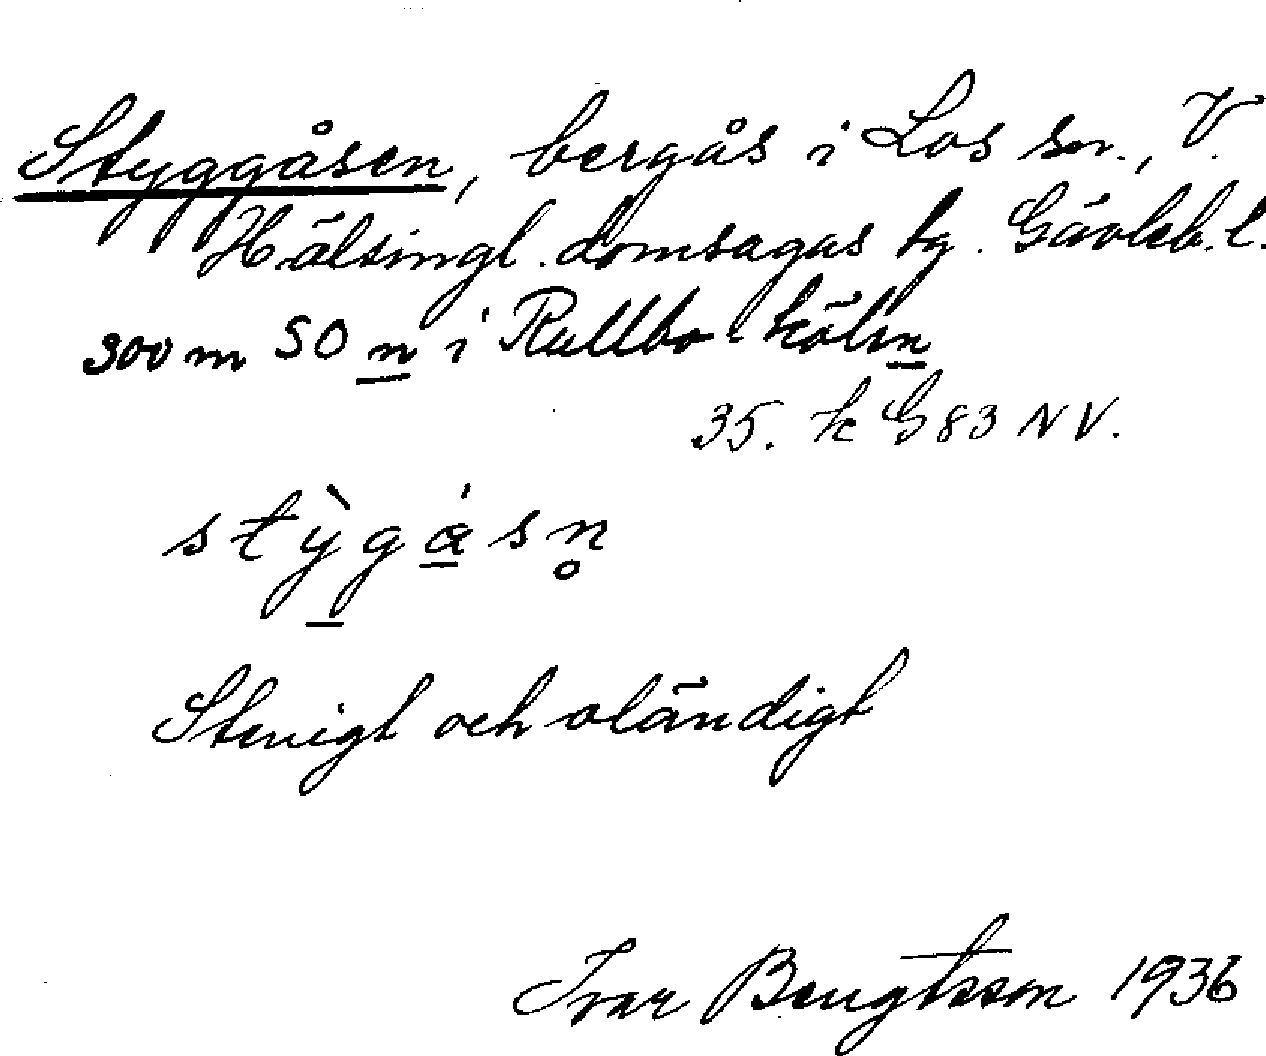 Styggåsen, bergås i Los sn., V.
Hälsingl. domsagas tg. Gävleb. l.
300 m SO n i Rullbo-kölen
35. k G83 NV.
stỳgɑ́sn̥
Stenigt och oländigt
Ivar Bengtsson 1936